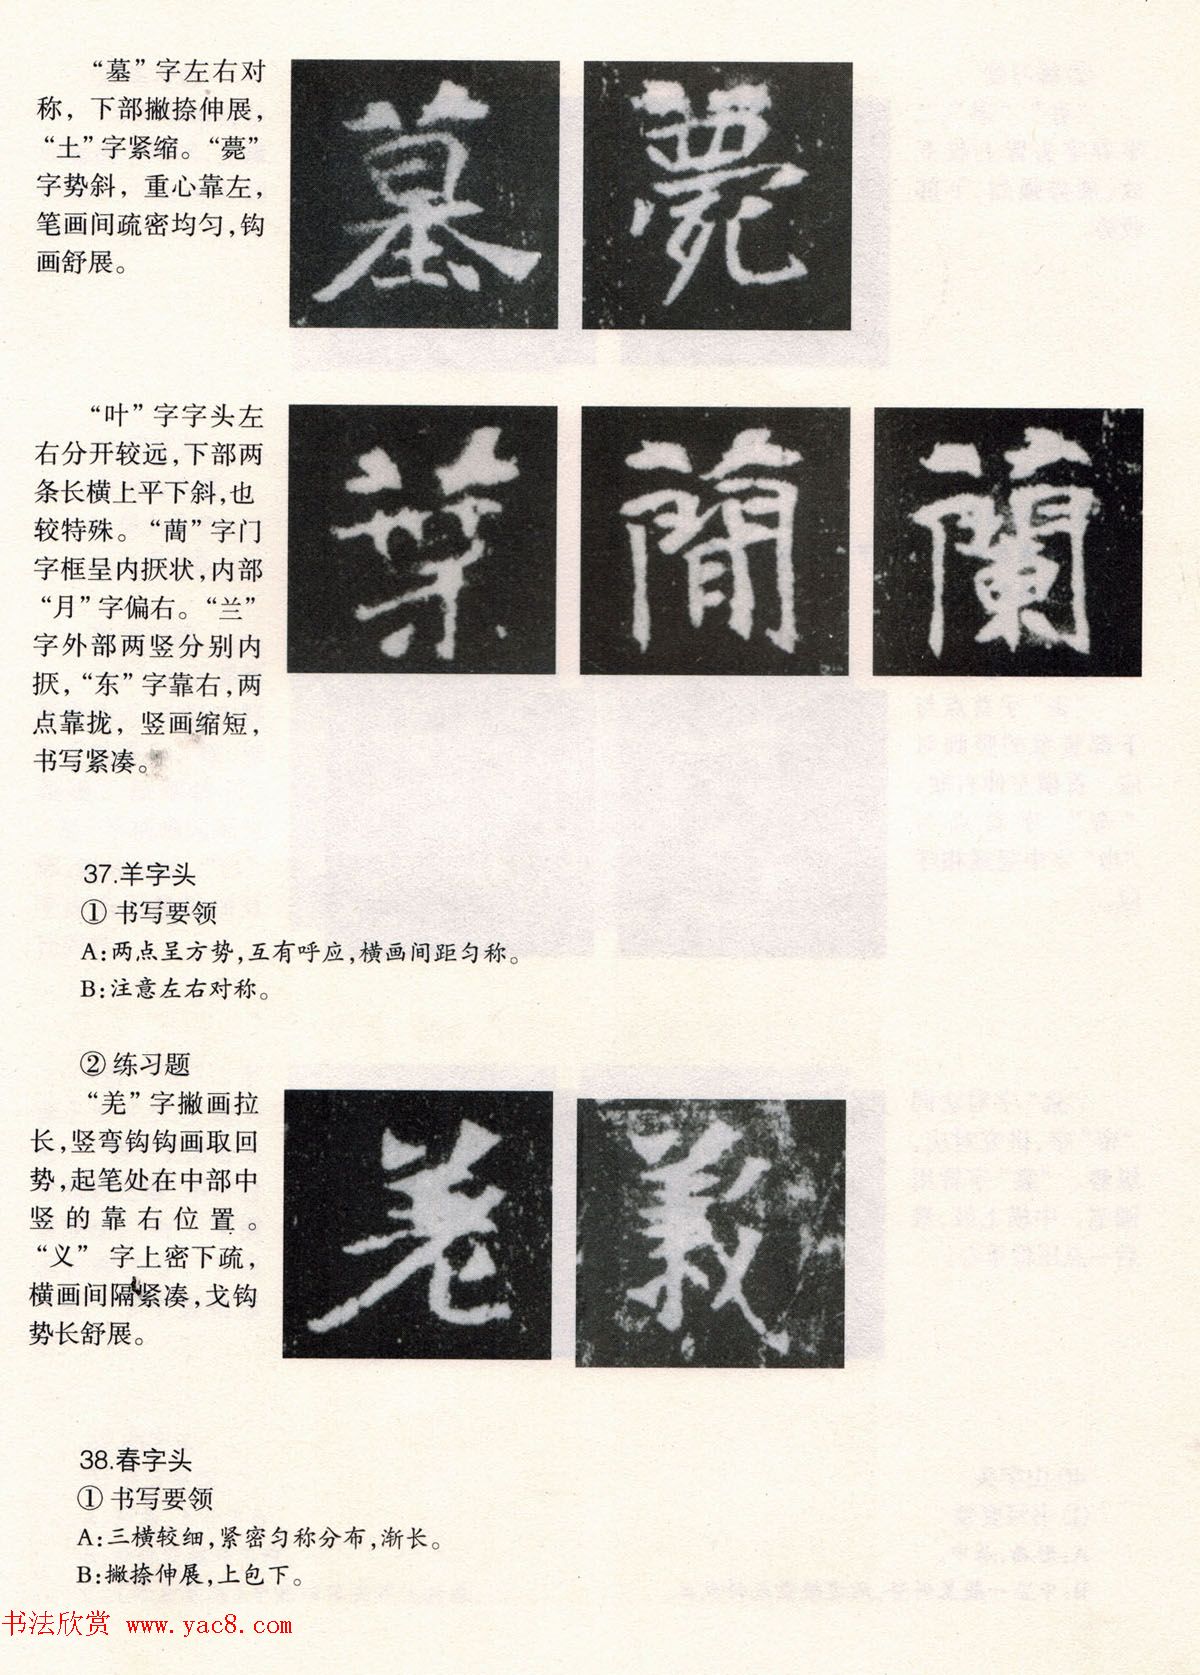 “墓”字左右对
称，下部撇捺伸展，
“土”字紧缩。“薨”
字势斜，重心靠左，
笔画间疏密均匀，钩
画舒展。
墓 薨
“叶”字字头左
右分开较远，下部两
条长横上平下斜，也
较特殊。“蕳”字门
字框呈内抚状，内部
“月”字偏右。“兰”
字外部两竖分别内
抚，“东”字靠右，两
点靠拢，竖画缩短，
书写紧凑。
葉 蕳 蘭
37.羊字头
① 书写要领
A:两点呈方势，互有呼应，横画间距匀称。
B:注意左右对称。
② 练习题
“羌”字撇画拉
长，竖弯钩钩画取回
势，起笔处在中部中
竖的靠右位置。
“义”字上密下疏，
横画间隔紧凑，戈钩
势长舒展。
羌 義
38.春字头
① 书写要领
A:三横较细，紧密匀称分布，渐长。
B:撇捺伸展，上包下。
书法欣赏 www.yac8.com